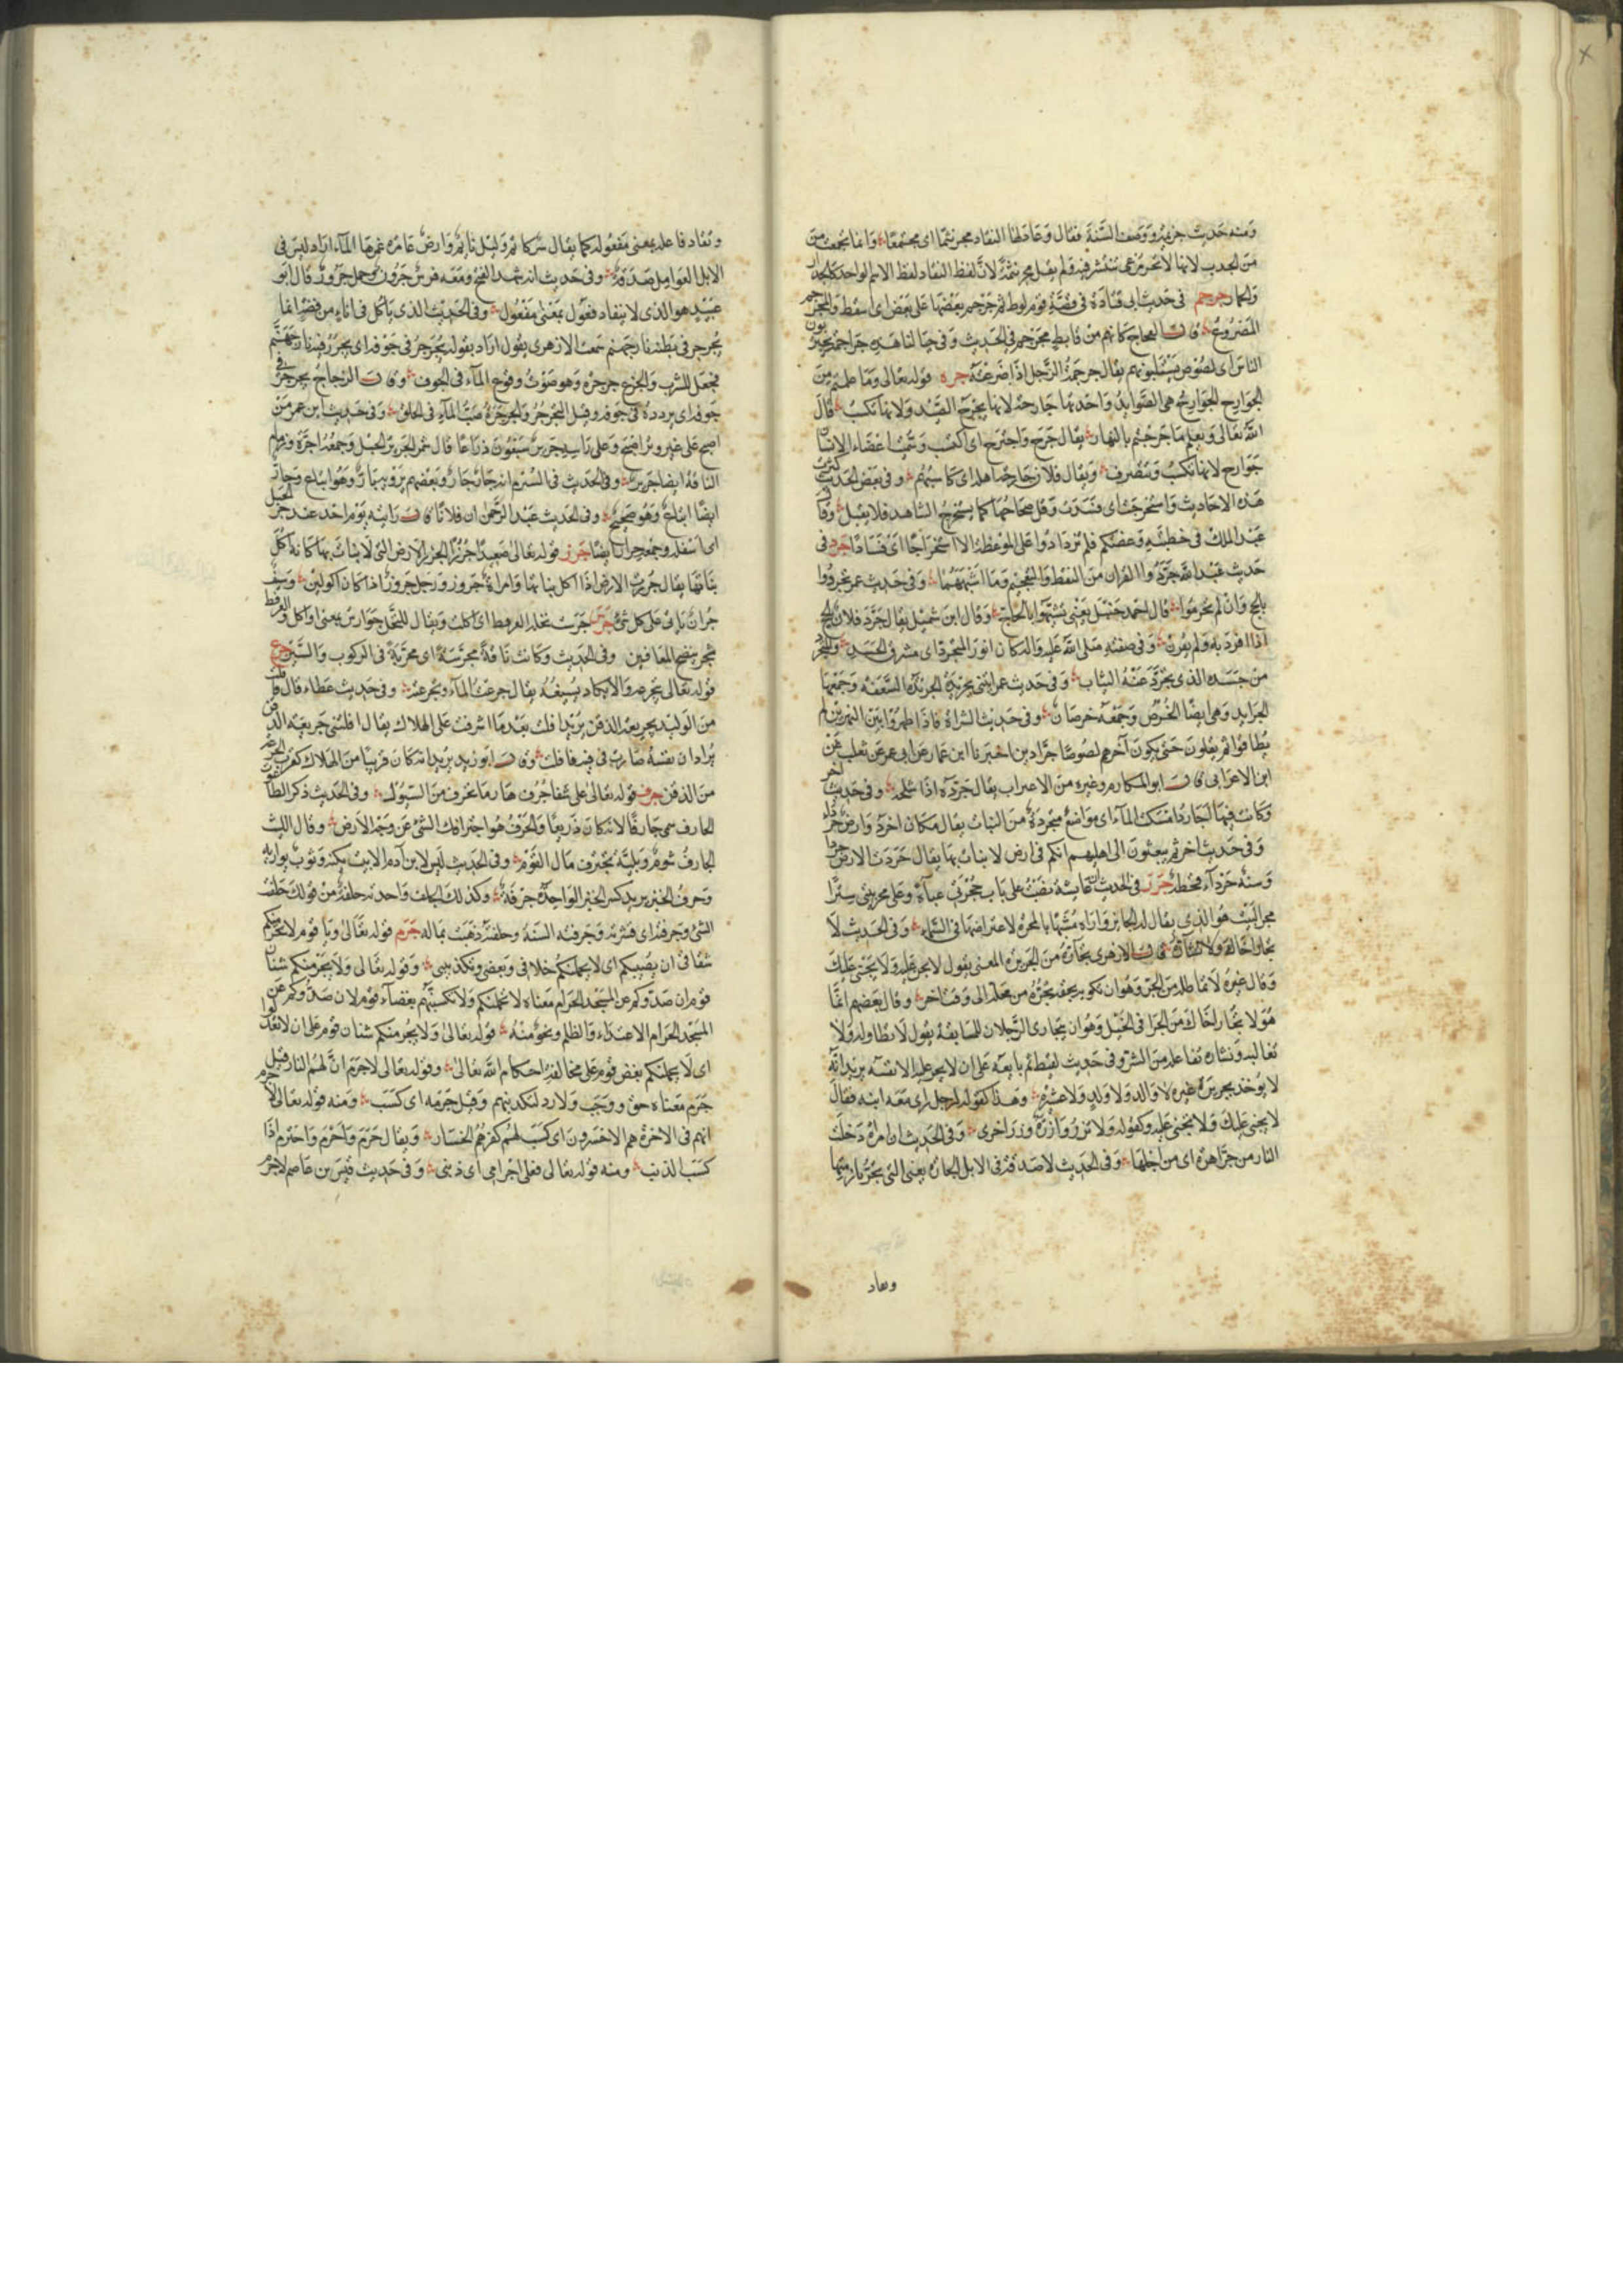 ومنه حديث خزيمة ووصف السنة فقال وعادلها النقاد مجرنثما اى مجتمعا وانما تجمعت من
من الجدب لانها لا تجد مرعى تنتشر فيه ولم يقل مجرنثمة لان لفظ النقاد لفظ الاسم الواحد كالجدار
والحمار جرجم فى حديث ابى قتادة فى قصة قوم لوط ثم جرجم بعضها على بعض اى اسقط والمجرجم
المصروع قال العجاج كانهم من فايظ مجرجم وفى الحديث وفى جبالنا هذه جراجمة يحتربون
الناس اى لصوص يستلبونهم يقال جرجمة الرجل اذا صرعته جرح قوله تعالى وما علمتم من
الجوارح الجوارح هى الصوايد واحدتها جارحة لانها تجرح الصيد ولانها تكسب قال
الله تعالى ويعلم ما جرحتم بالنهار يقال جرح واجترح اى اكتسب وسميت اعضاء الانسان
جوارح لانها تكسب وتتصرف ويقال فلان جارحة اهله اى كاسبهم وفى بعض الحديث كثرت
هذه الاحاديث واستجرحت اى فسدت وقل صحاحها كما يستجرح الشاهد فلا يقبل وقال
عبد الملك فى خطبته وعظتكم فلم تزدادوا على الموعظة الا استجراحا اى فسادا جرد فى
حديث عبد الله جردوا القران من النقط والتعجيم وما اشبههما وفى حديث عمر تجردوا
بالحج وان لم تحرموا قال احمد حنبل يعنى تشبهوا بالحاج وقال ابن شميل يقال جرد فلان الحج
اذا افرد به ولم يقرن وفى صفته صلى الله عليه واله كان انور المتجرد اى مشرق الجسد والمتجرد
من جسده الذى تجرد عنه الثياب وفى حديث عمر ايتنى بجريدة الجريدة السعفة وجمعها
الجرايد وهى ايضا الخرص وجمعه خرصان وفى حديث الشراة فاذا ظهروا بين النهرين لم
يطاقوا ثم يقلون حتى يكون آخرهم لصوصا جرادين اخبرنا ابن عمار عن ابى عمر عن ثعلب عن
ابن الاعرابى قال ابو المكارم وغيره من الاعراب يقال جرده اذا شلحه وفى حديث آخر
وكانت فيها اجارد امسكت الماء اى مواضع متجردة من النبات يقال مكان اجرد وارض جرداء
وفى حديث اخر ثم يبعثون الى اهليهم انكم فى ارض لا نبات بها يقال جردت الارض جردا
وسنة جرداء قحطة جرر فى الحديث ان عايشة نصبت على باب حجرتى عباءة وعلى مجر بيتى سترا
مجر البيت هو الذى يقال له الجايز واراه مشبها بالمجرة لاعتراضها فى السماء وفى الحديث لا
تجار اخاك ولا تشاره قال الازهرى تجاره من الجريرة المعنى يقول لا تجر عليه ولا تجنى عليك
وقال غيره لا تماطله من الجر وهو ان تلويه بحقه وتجره من محله الى وقت اخر وقال بعضهم انما
هو لا تجار اخاك من الجرا فى الخيل وهو ان يتجارى الرجلان للسابقة يقول لا تطاوله ولا
تغالبه وتشاره تفاعله من الشر وفى حديث لقيط ثم بايعه على ان لا يجر عليه الا نفسه يريد انه
لا يوخذ بجريرة غيره لا والد ولا ولد ولا عشيرة وهذا كقوله لرجل راى معه ابنه فقال
لا يجنى عليك ولا تجنى عليه وكقوله ولا تزر وازرة وزر اخرى وفى الحديث ان امراة دخلت
النار من جرا هرة اى من اجلها وفى الحديث لا صدقة فى الابل الجارة يعنى التى تجر بازمتها
وتقاد
وتقاد فاعلة بمعنى مفعوله كما يقال سر كاتم وليل نايم وارض غامرة غمرها الماء اراد ليس فى
الابل العوامل صدقة وفى حديث انه شهد الفتح ومعه فرس جرون وجمل جرور قال ابو
عبيد هو الذى لا ينقاد فعول بمعنى مفعول وفى الحديث الذى ياكل فى اناء من فضة انما
يجرجر فى بطنه نار جهنم سمعت الازهرى يقول اراد بقوله يجرجر فى جوفه اى يحدر فيه نار جهنم
فجعل للشرب والجرع جرجرة وهو صوت وقوع الماء فى الجوف وقال الزجاج يجرجر فى
جوفه اى يردده فى جوفه وقيل التجرجر والجرجرة صب الماء فى الحلق وفى حديث ابن عمر من
اصبح على غير وتر اصبح وعلى راسه جرير سبعون ذراعا قال شمر الجرير الحبل وجمعه اجرة وزمام
الناقة ايضا جرير وفى الحديث فى الشبرم انه حار جار وبعضهم يرويه يار وهو اتباع وحار
ايضا اتباع وهو صحيح وفى الحديث عبد الرحمن ان فلانا قال رايته يوم احد عند جر الجبل
اى اسفله وجمعه جرار ايضا جرز قوله تعالى صعيدا جرزا الجرز الارض التى لا نبات بها كانه اكل
نباتها يقال جرزت الارض اذا اكل نباتها وامراة جروز ورجل جروز اذا كان اكولين وسيف
جراز ياتى على كل شئ جرس جرست نحله العرفط اى اكلت ويقال للنحل جوارس بمعنى اواكل والعرفط
شجر ينضح المغافير وفى الحديث وكانت ناقة مجرسة اى مجربة فى الركوب والسير جرع
قوله تعالى يتجرعه ولا يكاد يسيغه يقال جرعت الماء وتجرعته وفى حديث عطاء قال قلت
من الوليد بجريعة الذقن يريد افلت بعد ما اشرف على الهلاك يقال افلتنى جريعة الذقن
يراد ان نفسه صارت فى فيه فافلت وقال ابو زيد يريد انه كان قريبا من الهلاك كقرب الجرعة
من الذقن جرف قوله تعالى على شفا جرف هار ما تجرف من السيول وفى الحديث ذكر الطاعون
الجارف سمى جارفا لانه كان ذريعا والجرف هو اجترافك الشئ عن وجه الارض وقال الليث
الجارف شوم وبلية تجترف مال القوم وفى الحديث ليس لابن آدم الا بيت يكنه وثوب يواريه
وجرف الخبز يريد كسر الخبز الواحدة جرفة وكذلك الجلف واحدته جلفة من قولك جلفت
الشئ وجرفته اى قشرته وجرفته السنة وجلفته ذهبت بماله جرم قوله تعالى ويا قوم لا يجرمنكم
شقاقى ان يصيبكم اى لا يحملنكم خلافى وبعضى وتكذيبى وقوله تعالى ولا يجرمنكم شنان
قوم ان صدوكم عن المسجد الحرام معناه لا تحملنكم ولا تكسبنكم بغضاء قوم لان صدوكم عن
المسجد الحرام الاعتداء والظلم ونحو منه قوله تعالى ولا يجرمنكم شنان قوم على ان لا تعدلوا
اى لا يحملنكم بغض قوم على مخالفة احكام الله تعالى وقوله تعالى لا جرم ان لهم النار قيل
جرم معناه حق ووجب ولا رد لتكذيبهم وقيل جرمه اى كسب ومنه قوله تعالى لا جرم
انهم فى الاخرة هم الاخسرون اى كسب لهم كفرهم الخسار ويقال جرم واجرم واجترم اذا
كسب الذنب ومنه قوله تعالى فعلى اجرامى اى ذنبى وفى حديث قيس بن عاصم لا جرم